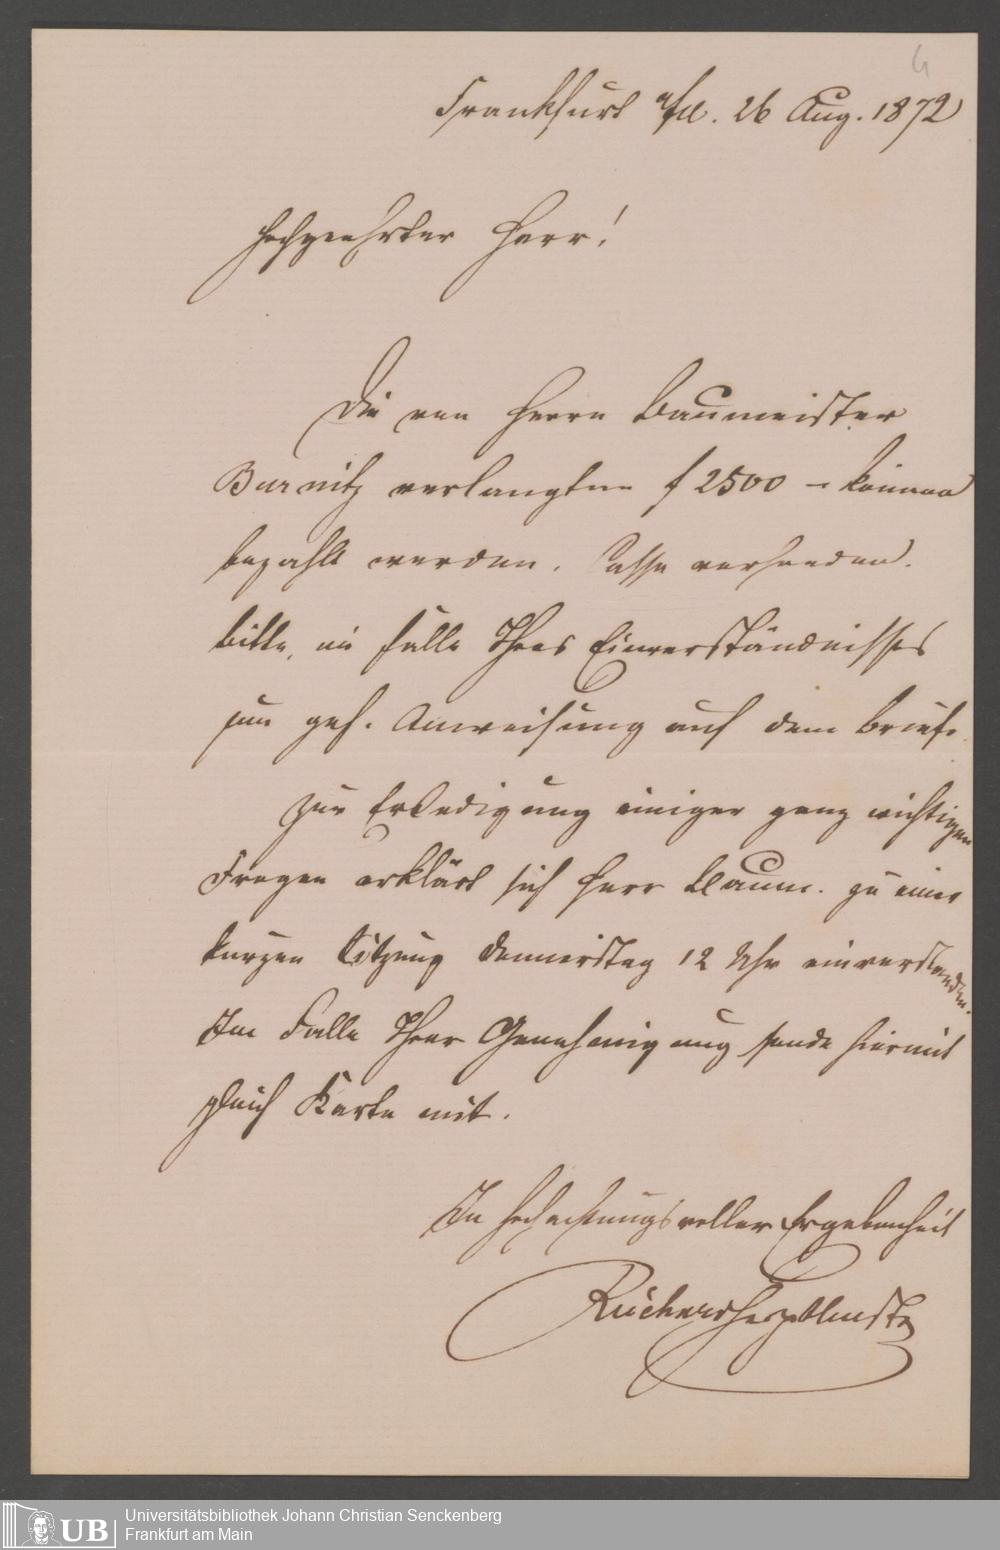 4
Frankfurt a/M. 26 Aug. 1872
Hochgeehrter Herr!
Die von Herrn Baumeister
Burnitz verlangten f 2500 – können
bezahlt werden. Casse vorhanden.
Bitte, im Falle Ihres Einverständnisses
um gef. Anweisung auf dem Briefe.
Zur Erledigung einiger ganz wichtigen
Fragen erklärt sich Herr zu einer
kurzen Sitzung Donnerstag 12 Uhr einverstanden.
Im Falle Ihrer Genehmigung sende hiermit
gleich Karte mit.
In hochachtungsvoller Ergebenheit
UB
Universitätsbibliothek Johann Christian Senckenberg
Frankfurt am Main